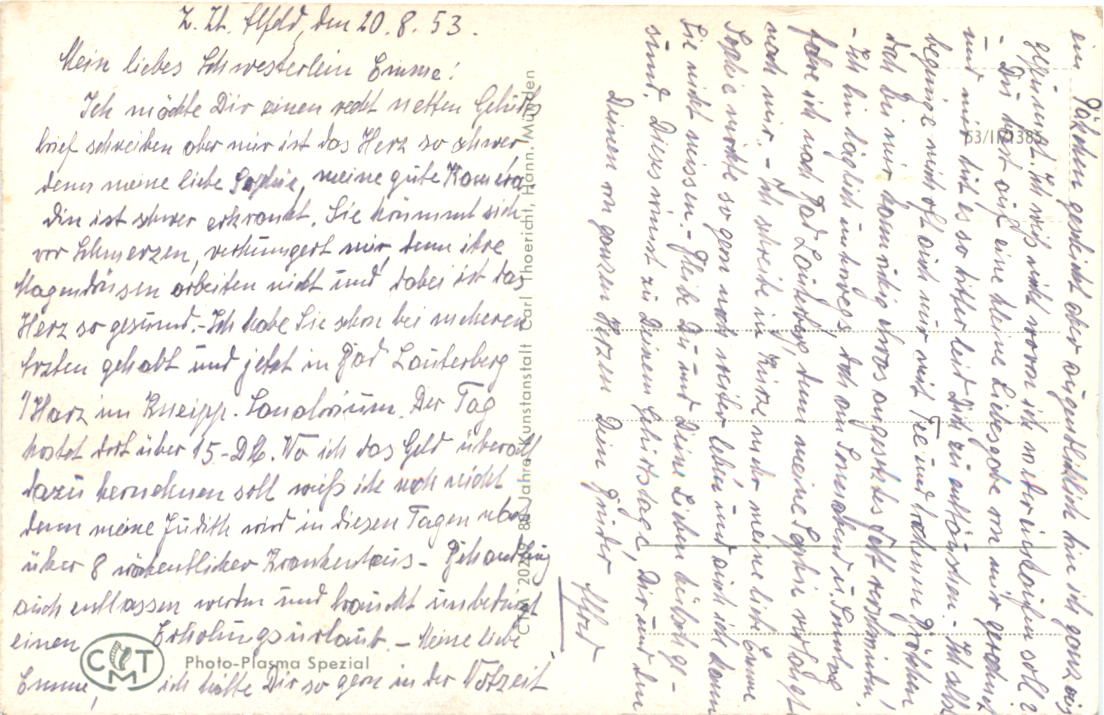 Z. Zt. Alfeld, den 20.8.53.
Mein liebes Schwesterlein Emme!
Ich möchte Dir einen recht netten Geburts
brief schreiben aber mir ist das Herz so schwer
denn meine liebe Sophie, meine gute Kamera
din ist schwer erkrankt. Sie krümmt sich
vor Schmerzen, verhungert mir, denn ihre
Magendrüsen arbeiten nicht und dabei ist das
Herz so gesund. - Ich habe Sie schon bei mehreren
Ärzten gehabt und jetzt in Bad Lauterberg
/Harz im Kneipp-Sanatorium. Der Tag
kostet dort über 15- DM. Wo ich das Geld überall
dazu hernehmen soll weiß ich noch nicht
denn meine Judith wird in diesen Tagen nach
über 8 wöchentlicher Krankenhaus-Behandlung
auch entlassen werden und braucht unbedingt
einen Erholungsurlaub. - Meine liebe
Emme, ich hätte Dir so gern in der Notzeit
ein Päckchen geschickt aber augenblicklich bin ich ganz aus
gepumpt. Ich weis nicht wovon ich wieder einkaufen soll?
- Du hast auf eine kleine Liebesgabe von mir gerechnet
und mir tut es so bitter leid Dich zu enttäuschen. Ich selbst
begnüge mich oft auch nur mit Tee und trockenem Brötchen
daß bei mir kann nichts etwas angesetztes Fett verschwinden.
- Ich bin täglich unterwegs, doch am Sonnabend u. Sonntag
fahre ich nach Bad Lauterberg, denn meine Sophie verlangt
nach mir. - Ich schreibe in Kürze mehr meine liebe Emme
Sophie möchte so gern noch weiter leben und auch ich kann
Sie nicht missen. - Bleibe Du und Deine Lieben recht ge-
sund. Dies wünscht zu Deinem Geburtstage, Dir und den
Deinen von ganzem Herzen Dein Bruder
Alfred
CTM 80 Jahre Kunstanstalt Carl Thoericht, Hann. Münden
53/II/1385
CTM
Photo-Plasma Spezial